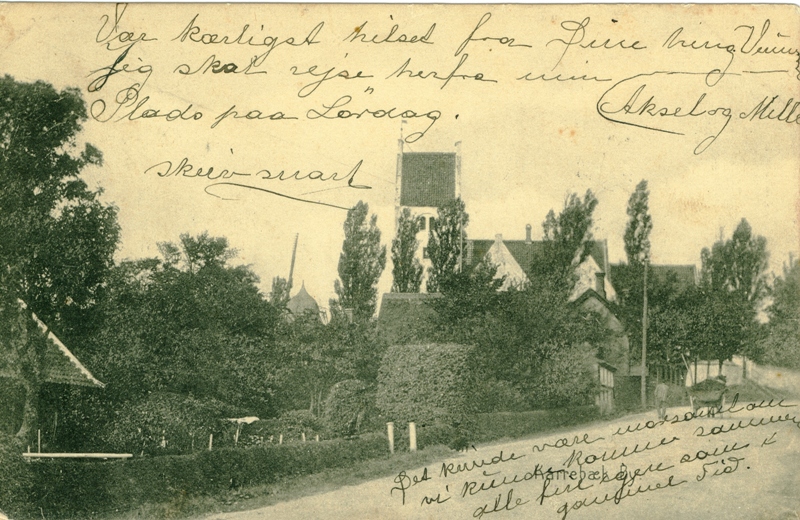 Vær kærligst hilset fra Dine heng Venner
Jeg skal rejse herfra min
Plads paa Lørdag. Aksel og Mille
skriv snart
Det kunde være morsomt om
vi kunde komme sammen
alle fire igen som x
gammel Tid.
Karrebæk